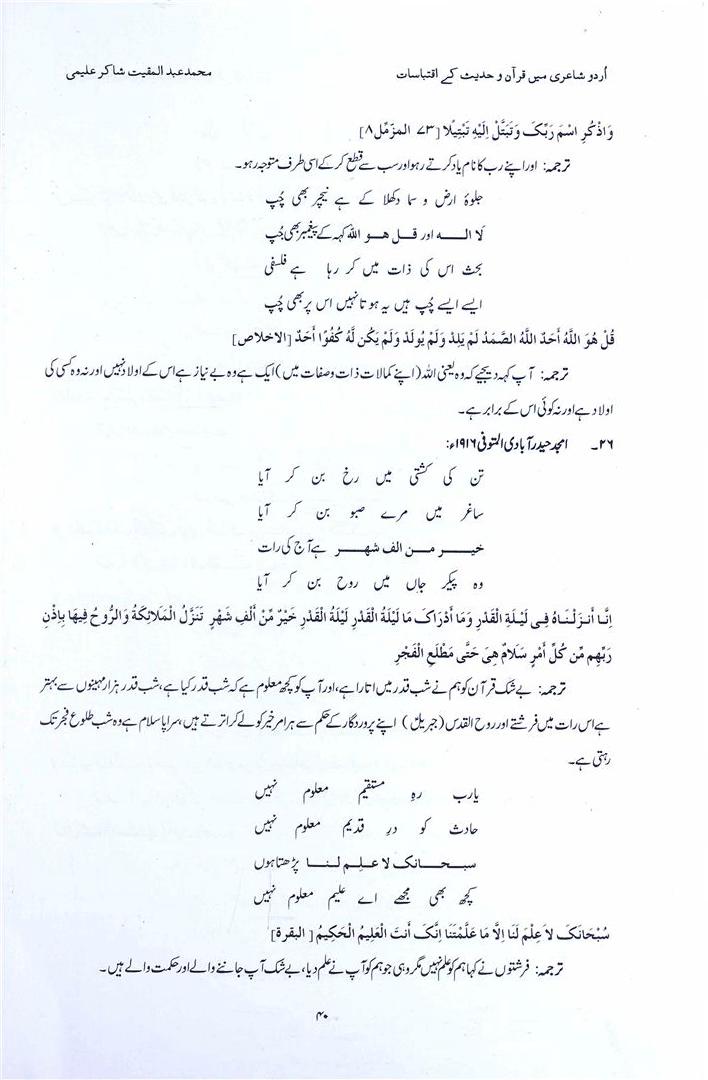 اُردو شاعری میں قرآن و حدیث کے اقتباسات
محمد عبد المقیت شاکر علیمی
وَاذْکُرِ اسْمَ رَبِّکَ وَتَبَتَّلْ اِلَیْہِ تَبْتِیْلًا [۷۳ المزّمل ۸]
ترجمہ: اور اپنے رب کا نام یاد کرتے رہو اور سب سے قطع کر کے اسی طرف متوجہ رہو۔
جلوۂ ارض و سما دکھلا کے ہے نیچر بھی چُپ
لَا الٰہ اور قل ھو اللہ کہہ کے پیغمبر بھی چُپ
بحث اس کی ذات میں کر رہا ہے فلسفی
ایسے ایسے چُپ ہیں یہ ہوتا نہیں اس پر بھی چُپ
قُلْ هُوَ اللَّهُ أَحَدٌ اللَّهُ الصَّمَدُ لَمْ يَلِدْ وَلَمْ يُولَدْ وَلَمْ يَكُن لَّهُ كُفُوًا أَحَدٌ [الاخلاص]
ترجمہ: آپ کہہ دیجیے کہ وہ یعنی اللہ (اپنے کمالات ذات وصفات میں) ایک ہے وہ بے نیاز ہے اس کے اولاد نہیں اور نہ وہ کسی کی
اولاد ہے اور نہ کوئی اس کے برابر ہے۔
۲۶۔ امجد حیدر آبادی المتوفی ۱۹۱۶ء:
تن کی کشتی میں رخ بن کر آیا
ساغر میں مرے صبو بن کر آیا
خیر من الف شہر ہے آج کی رات
وہ پیکر جاں میں روح بن کر آیا
اِنَّا أَنزَلْنَاهُ فِی لَیْلَةِ الْقَدْرِ وَمَا أَدْرَاکَ مَا لَیْلَةُ الْقَدْرِ لَیْلَةُ الْقَدْرِ خَیْرٌ مِّنْ أَلْفِ شَهْرٍ تَنَزَّلُ الْمَلَائِکَةُ وَالرُّوحُ فِیهَا بِإِذْنِ
رَبِّهِم مِّن کُلِّ أَمْرٍ سَلَامٌ هِیَ حَتَّی مَطْلَعِ الْفَجْرِ
ترجمہ: بے شک قرآن کو ہم نے شب قدر میں اتارا ہے، اور آپ کو کچھ معلوم ہے کہ شب قدر کیا ہے، شب قدر ہزار مہینوں سے بہتر
ہے اس رات میں فرشتے اور روح القدس (جبریلؑ) اپنے پروردگار کے حکم سے ہر امر خیر کو لے کر اترتے ہیں، سراپا سلام ہے وہ شب طلوع فجر تک
رہتی ہے۔
یارب رہِ مستقیم معلوم نہیں
حادث کو درِ قدیم معلوم نہیں
سبحانک لا علم لنا پڑھتا ہوں
کچھ بھی مجھے اے علیم معلوم نہیں
سُبْحَانَکَ لاَ عِلْمَ لَنَا اِلَّا مَا عَلَّمْتَنَا اِنَّکَ أَنتَ الْعَلِیْمُ الْحَکِیْمُ [البقرة]
ترجمہ: فرشتوں نے کہا ہم کو علم نہیں مگر وہی جو ہم کو آپ نے علم دیا، بے شک آپ جاننے والے اور حکمت والے ہیں۔
۴۰